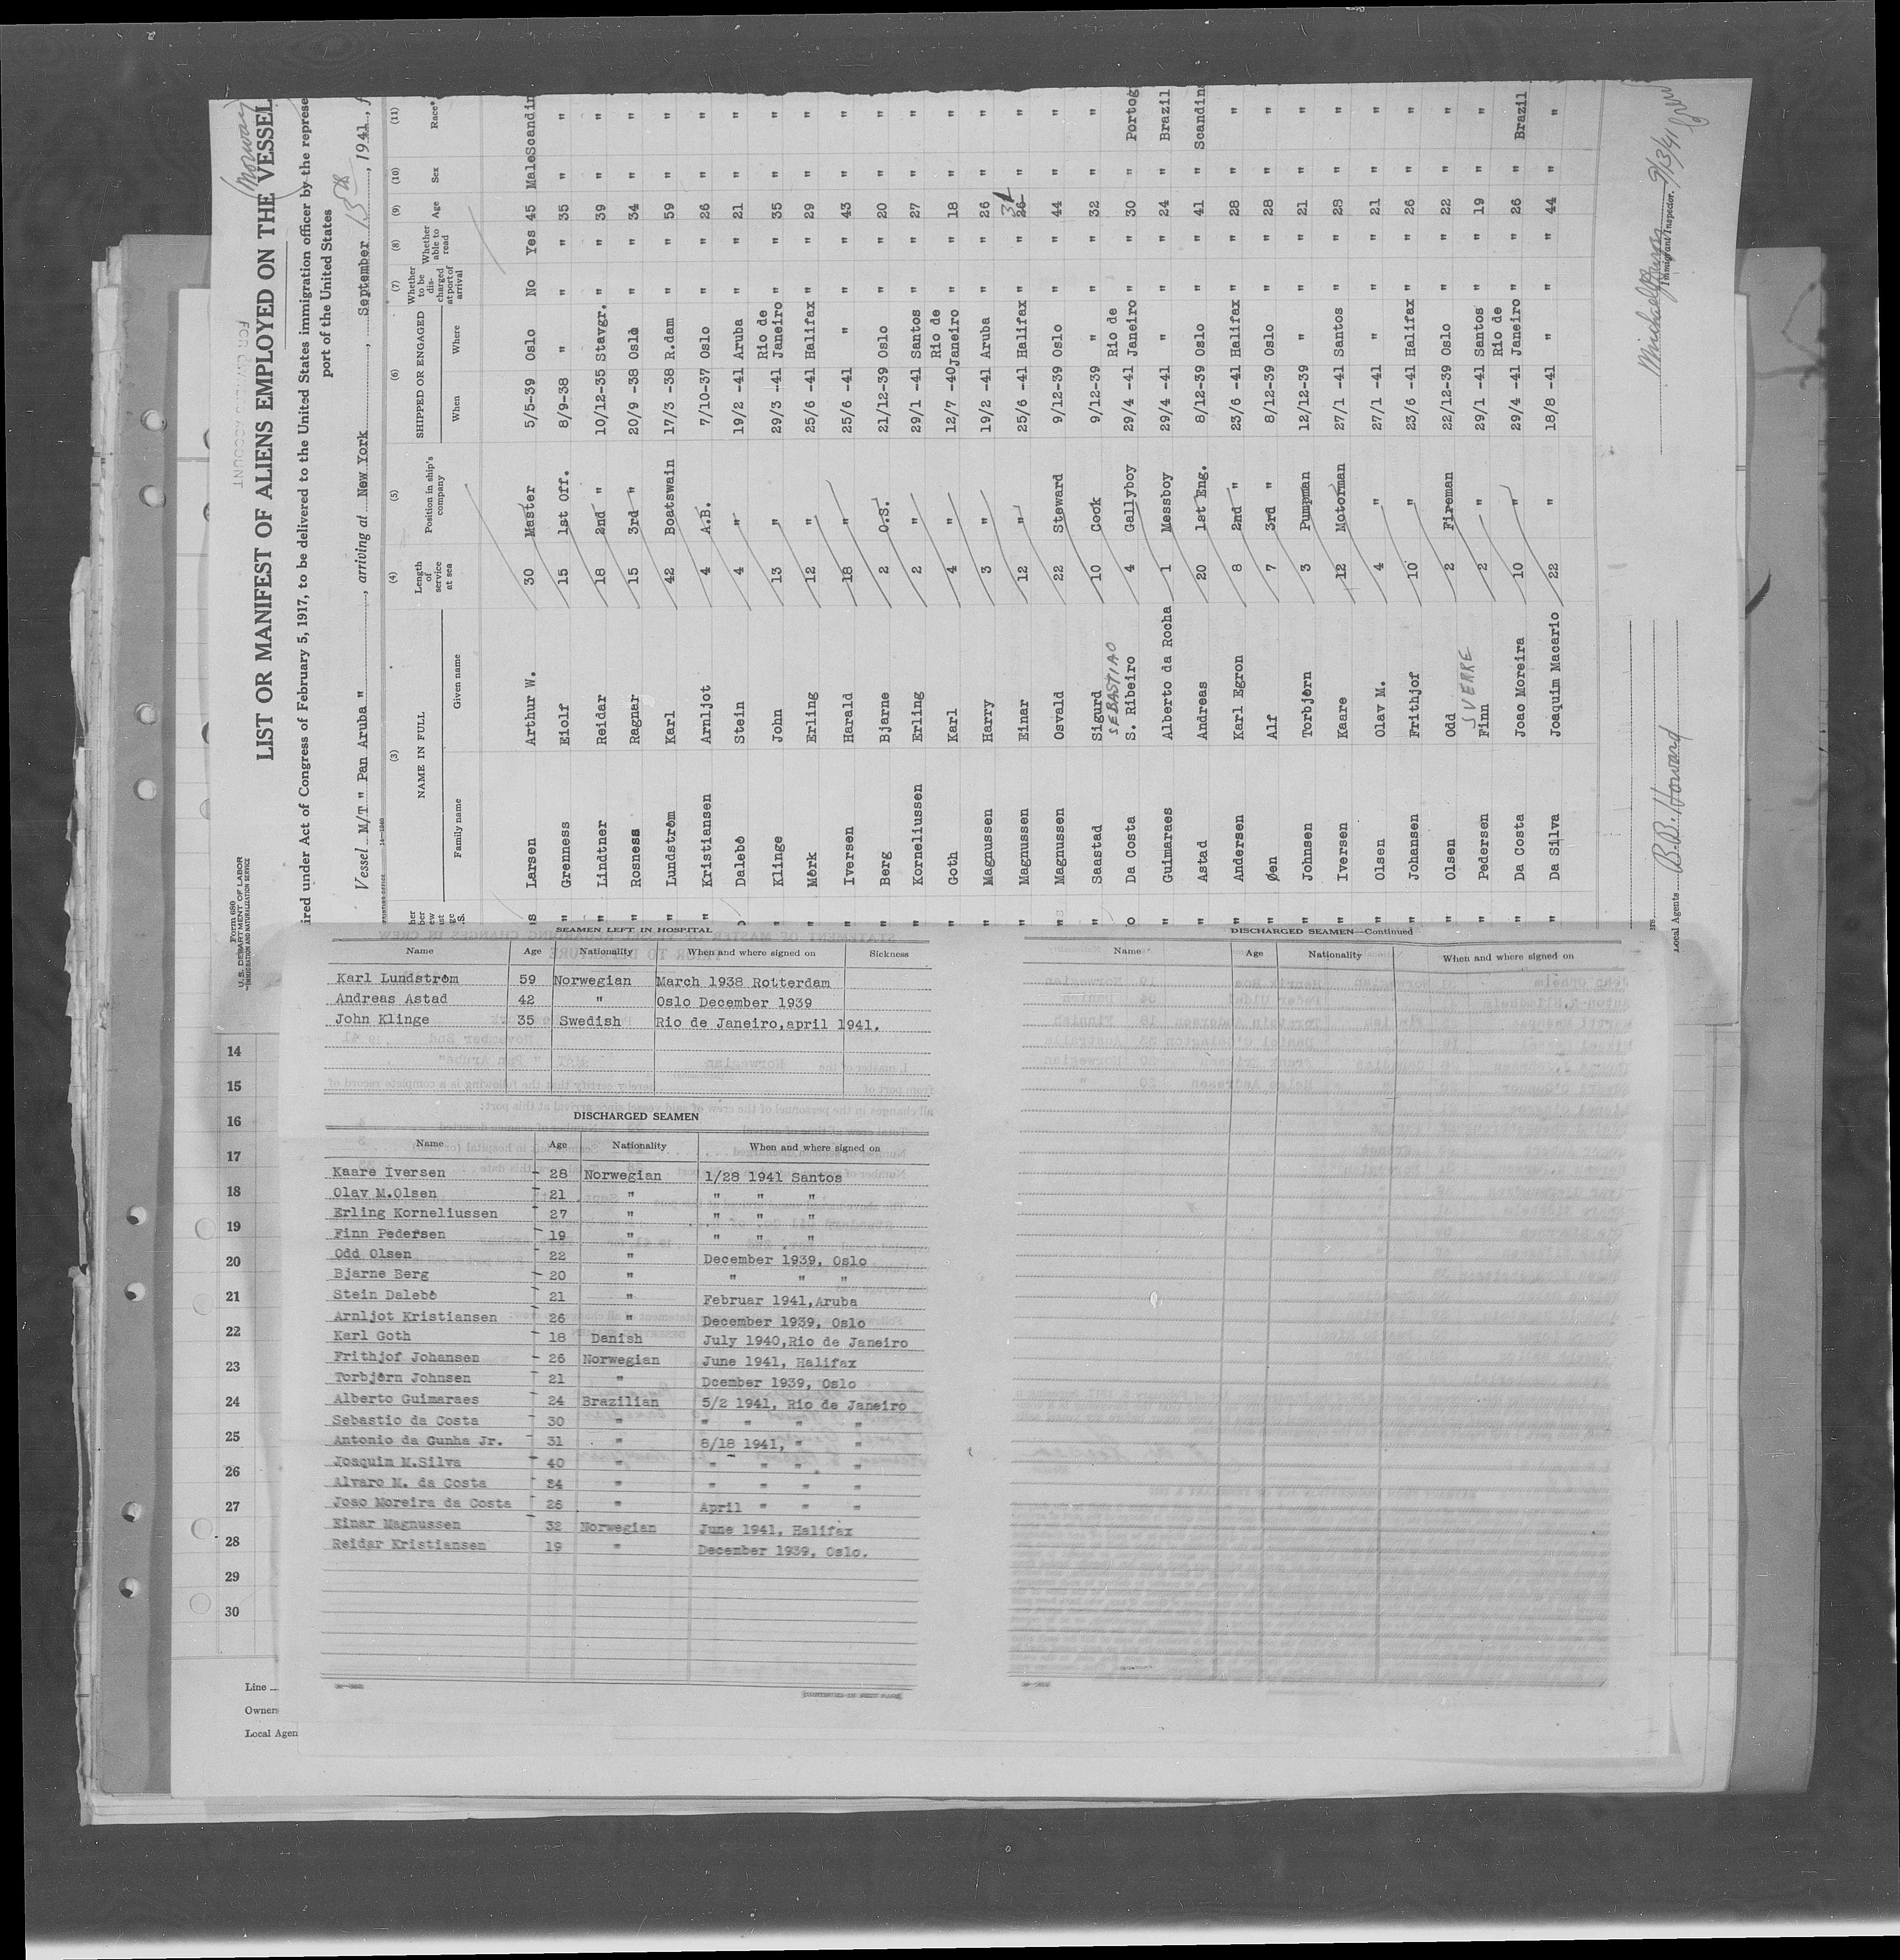 Form 680
U. S. DEPARTMENT OF LABOR
IMMIGRATION AND NATURALIZATION SERVICE
(Norway)
LIST OR MANIFEST OF ALIENS EMPLOYED ON THE VESSEL
ired under Act of Congress of February 5, 1917, to be delivered to the United States immigration officer by the represe
port of the United States
Vessel M/T " Pan Aruba ", arriving at New York, September 13th, 1941, f
(3) (4) (5) (6) (7) (8) (9) (10) (11)
NAME IN FULL Length of service at sea Position in ship's company SHIPPED OR ENGAGED Whether to be discharged at port of arrival Whether able to read Age Sex Race*
Family name Given name When Where
Larsen Arthur W. 30 Master 5/5-39 Oslo No Yes 45 Male Scandin
" Grenness Eiolf 15 1st Off. 8/9-38 " " " 35 " "
" Lindtner Reidar 18 2nd " 10/12-35 Stavgr. " " 39 " "
" Rosness Ragnar 15 3rd " 20/9 -38 Oslo " " 34 " "
" Lundström Karl 42 Boatswain 17/3 -38 R.dam " " 59 " "
" Kristiansen Arnljot 4 A.B. 7/10-37 Oslo " " 26 " "
Dalebö Stein 4 " 19/2 -41 Aruba " " 21 " "
" Klinge John 13 " 29/3 -41 Rio de Janeiro " " 35 " "
" Mörk Erling 12 " 25/6 -41 Halifax " " 29 " "
" Iversen Harald 18 " 25/6 -41 " " " 43 " "
" Berg Bjarne 2 O.S. 21/12-39 Oslo " " 20 " "
" Korneliussen Erling 2 " 29/1 -41 Santos " " 27 " "
" Goth Karl 4 " 12/7 -40 Rio de Janeiro " " 18 " "
" Magnussen Harry 3 " 19/2 -41 Aruba " " 26 " "
" Magnussen Einar 12 " 25/6 -41 Halifax " " 26 " "
" Magnussen Osvald 22 Steward 9/12-39 Oslo " " 44 " "
" Saastad Sigurd 10 Cook 9/12-39 " " " 32 " "
SEBASTIAO
Da Costa S. Ribeiro 4 Gallyboy 29/4 -41 Rio de Janeiro " " 30 " Portog
" Guimaraes Alberto da Rocha 1 Messboy 29/4 -41 " " " 24 " Brazil
" Astad Andreas 20 1st Eng. 8/12-39 Oslo " " 41 " Scandin
" Andersen Karl Egron 8 2nd " 23/6 -41 Halifax " " 28 " "
" Øen Alf 7 3rd " 8/12-39 Oslo " " 28 " "
" Johnsen Torbjörn 3 Pumpman 12/12-39 " " " 21 " "
" Iversen Kaare 12 Motorman 27/1 -41 Santos " " 28 " "
" Olsen Olav M. 4 " 27/1 -41 " " " 21 " "
" Johansen Frithjof 10 " 23/6 -41 Halifax " " 26 " "
" Olsen Odd 2 Fireman 22/12-39 Oslo " " 22 " "
SVERRE
" Pedersen Finn 2 " 29/1 -41 Santos " " 19 " "
" Da Costa Joao Moreira 10 " 29/4 -41 Rio de Janeiro " " 26 " Brazil
" Da Silva Joaquim Macario 22 " 18/8 -41 " " " 44 " "
Local Agents B.B. Howard
Immigrant Inspector. 9/13/41
SEAMEN LEFT IN HOSPITAL
Name Age Nationality When and where signed on Sickness
Karl Lundström 59 Norwegian March 1938 Rotterdam
Andreas Astad 42 " Oslo December 1939
John Klinge 35 Swedish Rio de Janeiro,april 1941.
DISCHARGED SEAMEN
Name Age Nationality When and where signed on
Kaare Iversen 28 Norwegian 1/28 1941 Santos
Olav M.Olsen 21 " " " "
Erling Korneliussen 27 " " " "
Finn Pedersen 19 " " " "
Odd Olsen 22 " December 1939, Oslo
Bjarne Berg 20 " " " "
Stein Dalebö 21 " Februar 1941,Aruba
Arnljot Kristiansen 26 " December 1939, Oslo
Karl Goth 18 Danish July 1940,Rio de Janeiro
Frithjof Johansen 26 Norwegian June 1941, Halifax
Torbjörn Johnsen 21 " Dcember 1939, Oslo
Alberto Guimaraes 24 Brazilian 5/2 1941, Rio de Janeiro
Sebastio da Costa 30 " " " " "
Antonio da Gunha Jr. 31 " 8/18 1941, " "
Joaquim M.Silva 40 " " " " "
Alvaro M. da Costa 24 " " " " "
Joao Moreira da Costa 26 " April " " "
Einar Magnussen 32 Norwegian June 1941, Halifax
Reidar Kristiansen 19 " December 1939, Oslo.
DISCHARGED SEAMEN—Continued
Name Age Nationality When and where signed on
14
15
16
17
18
19
20
21
22
23
24
25
26
27
28
29
30
Line
Owners
Local Agen